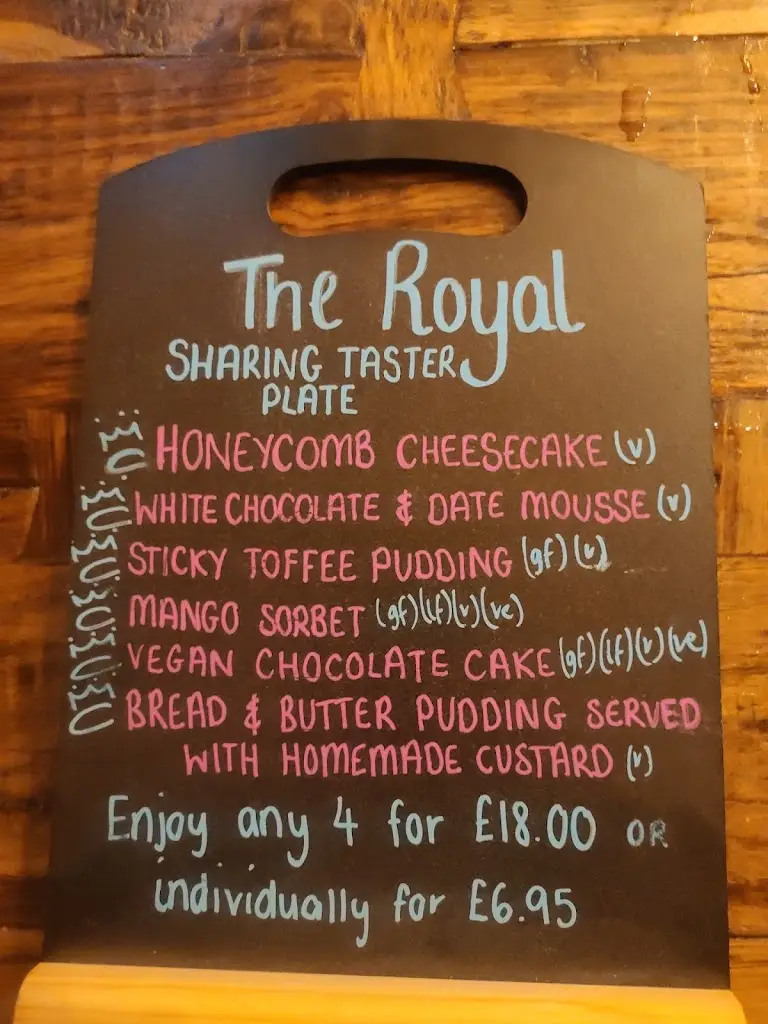 The Royal
SHARING TASTER
PLATE
HONEYCOMB CHEESECAKE (v)
WHITE CHOCOLATE & DATE MOUSSE (v)
STICKY TOFFEE PUDDING (gf) (v)
MANGO SORBET (gf) (lf) (v) (ve)
VEGAN CHOCOLATE CAKE (gf) (lf) (v) (ve)
BREAD & BUTTER PUDDING SERVED
WITH HOMEMADE CUSTARD (v)
Enjoy any 4 for £18.00 OR
individually for £6.95